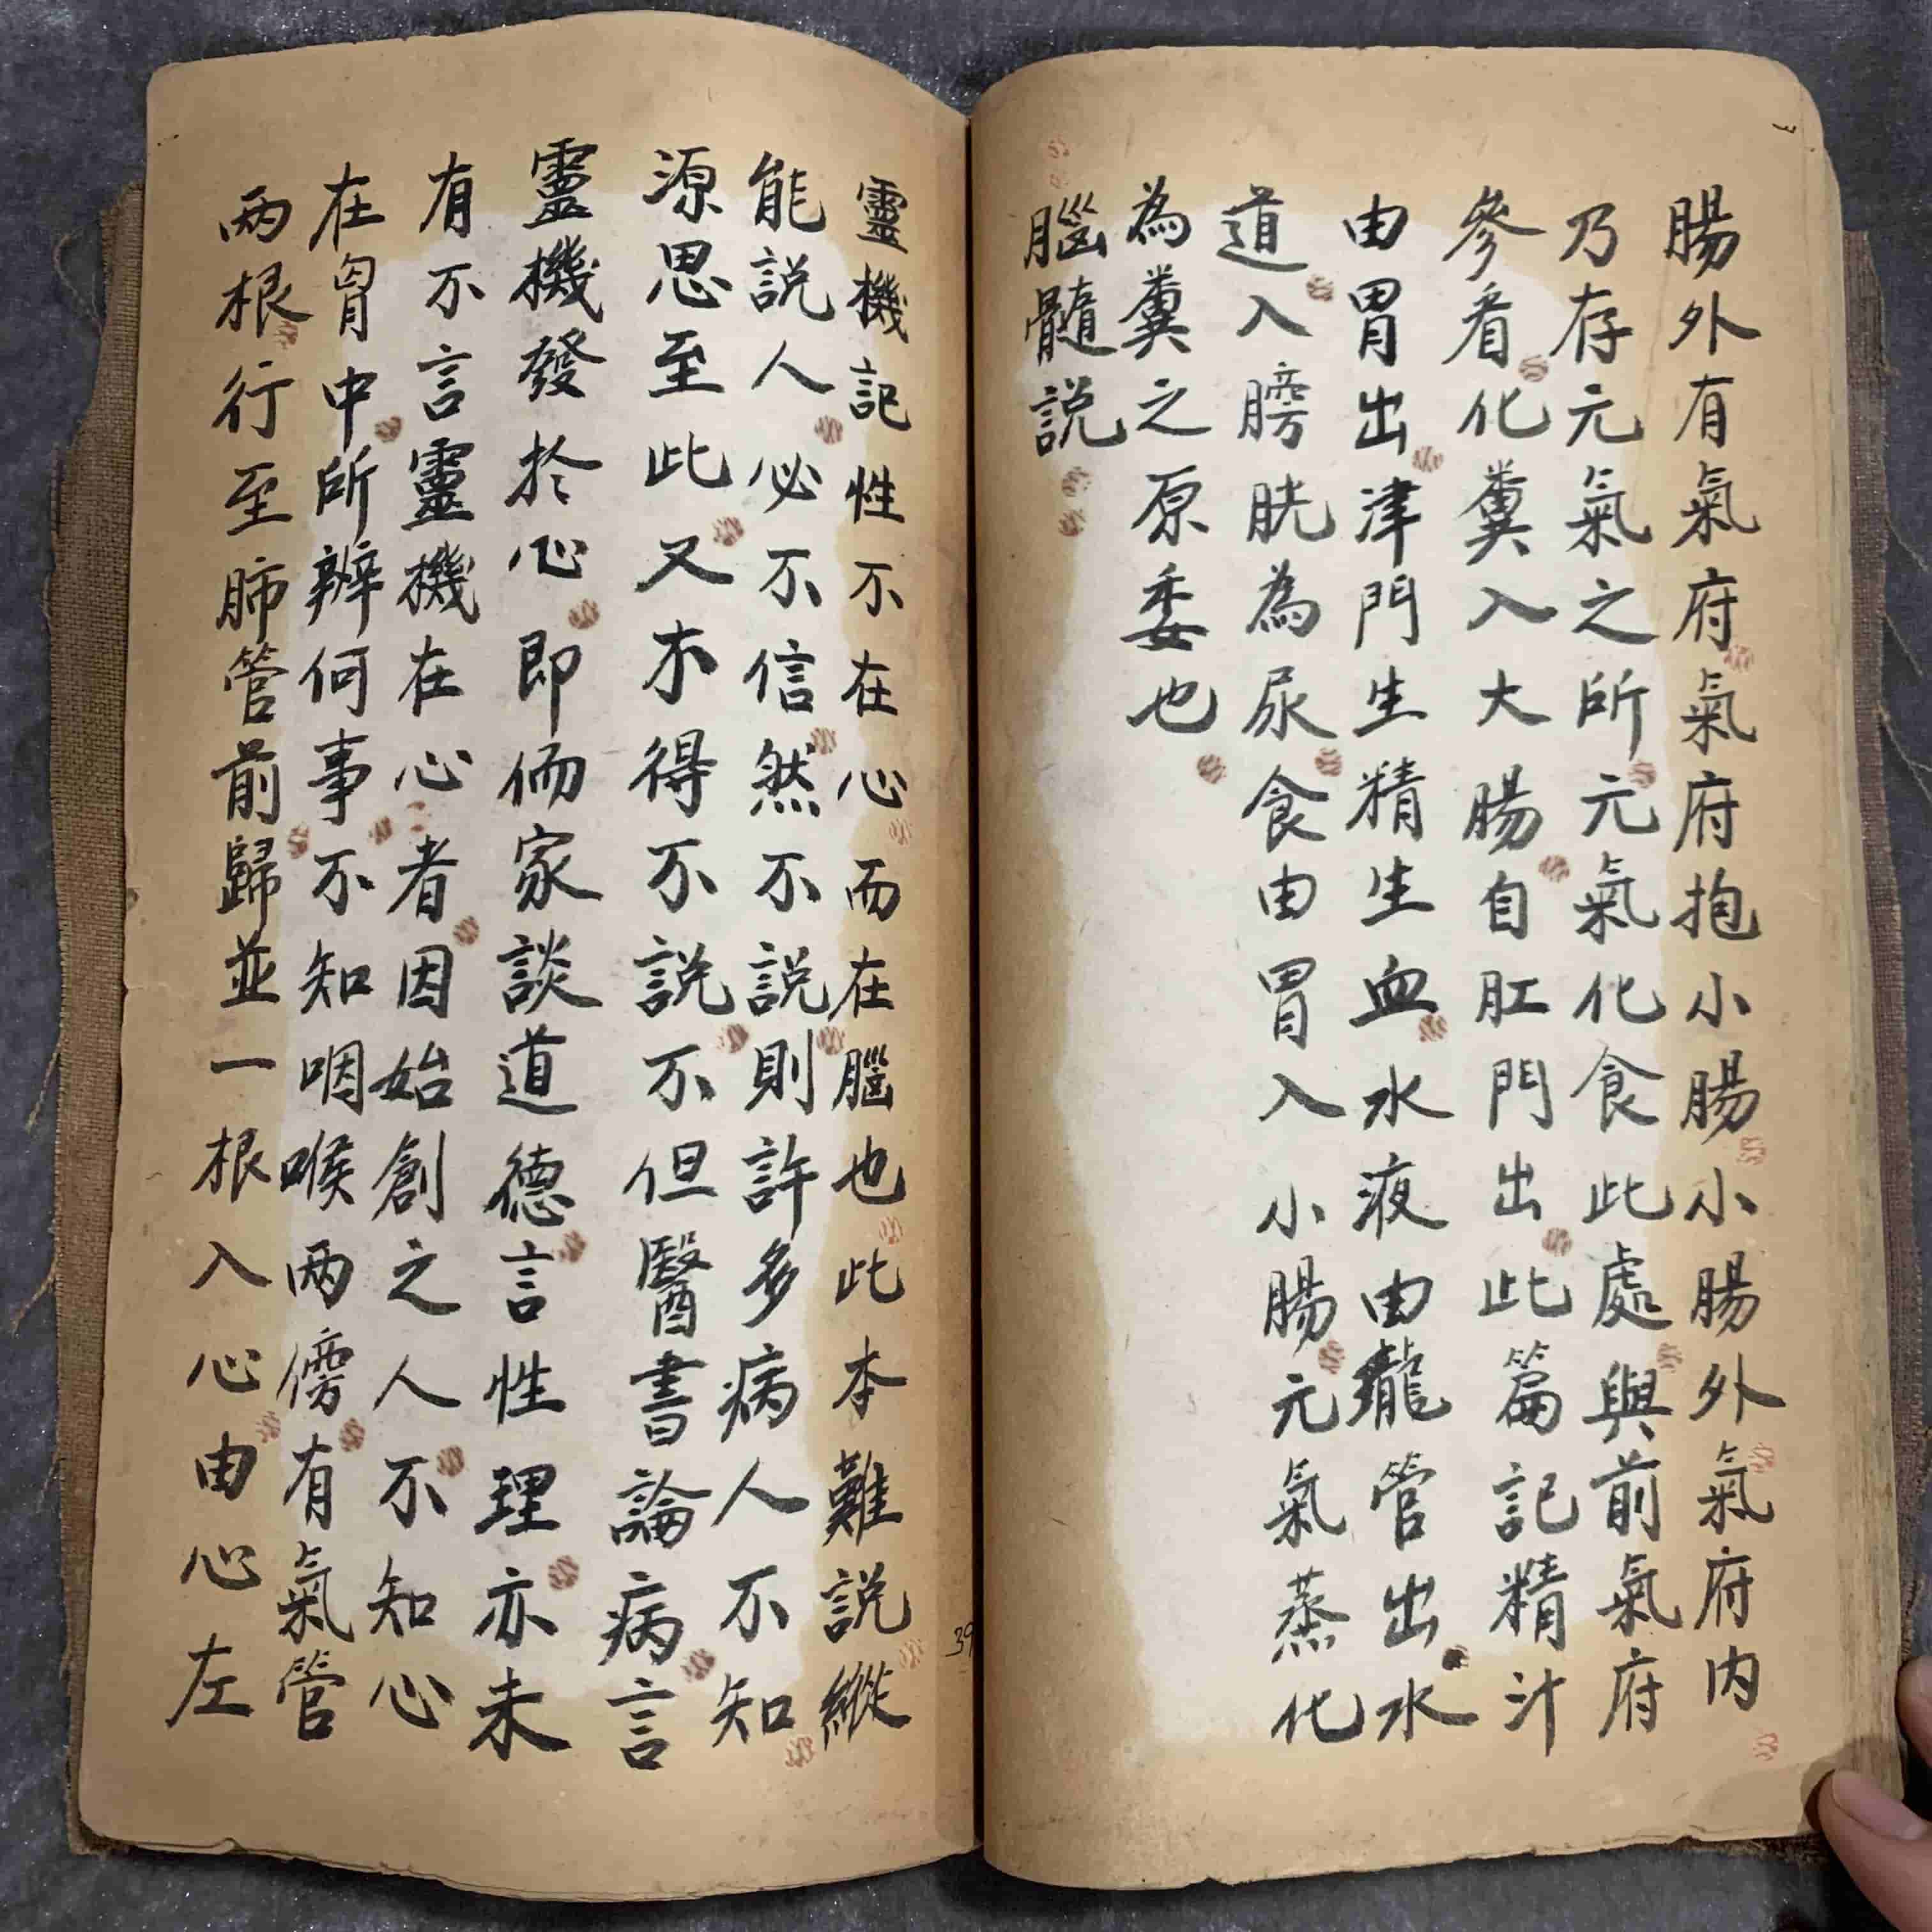 腸外有氣府氣府抱小腸小腸外氣府内
乃存元氣之所元氣化食此處與前氣府
參看化糞入大腸自肛門出此篇記精汁
由胃出津門生精生血水液由蘢管出水
道入膀胱為尿食由胃入小腸元氣蒸化
為糞之原委也
腦髓説
靈機記性不在心而在腦也此本難説縱
能説人必不信然不説則許多病人不知
源思至此又亦得不説不但醫書論病言
靈機發於心即俻家談道德言性理亦未
有不言靈機在心者因始創之人不知心
在胷中所辨何事不知咽喉两傍有氣管
两根行至肺管前歸並一根入心由心左
39